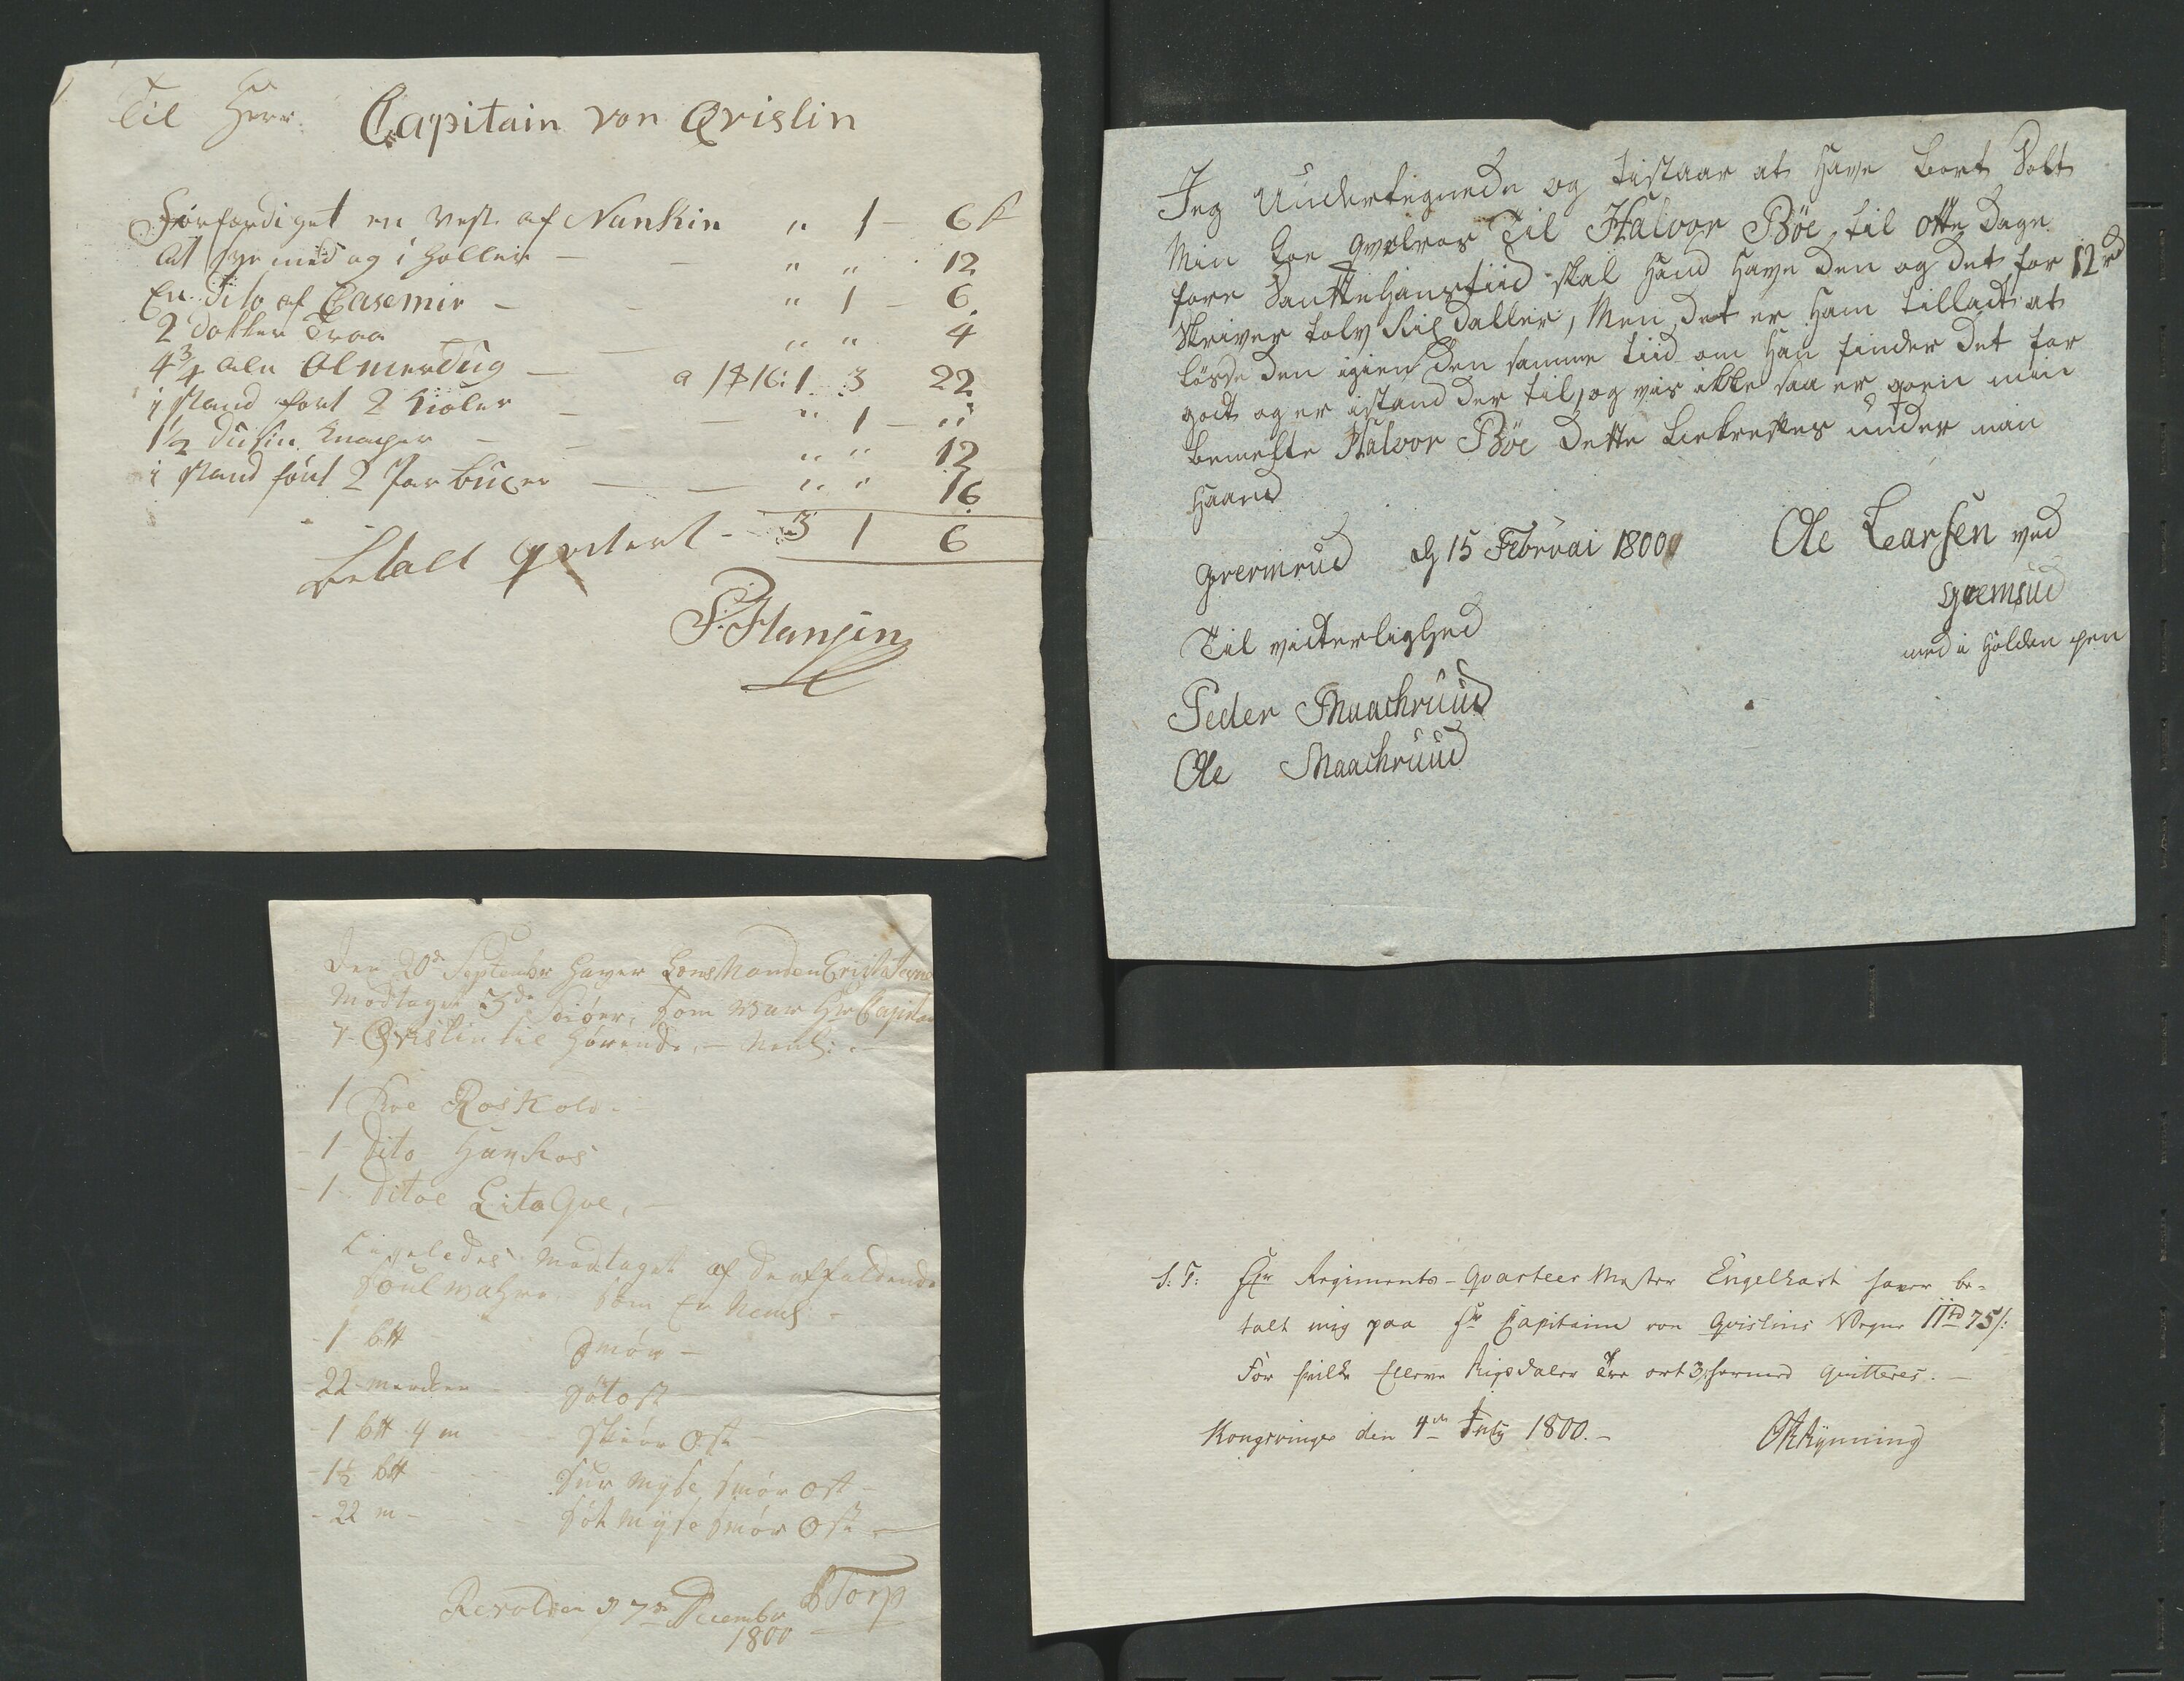 Til Herr. Capitain von Qvislin
Forfærdiget en Vest af Nankin " 1 - 6 s
At sye med og i holler - - " " 12
En Dito af Casemir - - " 1 - 6.
2 dokker Traa — " " 4
4 3/4 Aln Olmerdug - a 1 16: 1 3 22
i stand fort 2 Kioler - - " 1 - "
1 1/2 dusin Knaper - - " " 12
i stand fört 2 Par buxer — — " " 16
betalt qvitert - 3 1 6
P. Hansen
Jeg Undertegnede og tistaar at Have bort Solt
Min Koe Til Halvor Böe, til otte Dage
fore Santtehansstiid skal Hand Have den og det for 12 rd
Skriver tolv Rix daller, Men det er Ham tilladt at
lösde den igien den samme tiid om Han finder det for
godt og er istand der til, og vis ikke saa er qoen min
bemelte Halvor Böe Dette bekreftes under min
Haand
Gremrud d 15 Februai 1800 Ole Larsen ved
Gremsud
med i Holden pen
Til vitterlighed
Peder Maachruud
Ole Maachruud
Den 20de Septembr haver Lensmanden
Modtaget 3de Kiöer, som war Hr Capitain
v. Qvislin til hörende, — Neml: —
1 Koe Roskold. -
- 1 - Dito
- 1 - Ditoe Litagoe, —
Ligeledes Modtaget af de affaldende
Soulwahre som Er Neml -
- 1 b℔ Smör —
- 22 - marcker Sötost
- 1 b℔ 4 m - Skiör Ost —
- 1 1/2 b℔ - Sur Myse Smör Ost —
- 22 m - - - Söt Myse Smör Ost —
d 7de Decembr BTorp
1800
S: T: Hr Regiments-Qvarteer Mester Engelhart haver be-
talt mig paa Hr Capitaine von Qvislins Vegne 11 rd 75 s:
For hvilke Elleve Rigsdaler Tre ort 3 s hermed Qvitteres. —
Kongsvinger den 4de July 1800. - Rynning